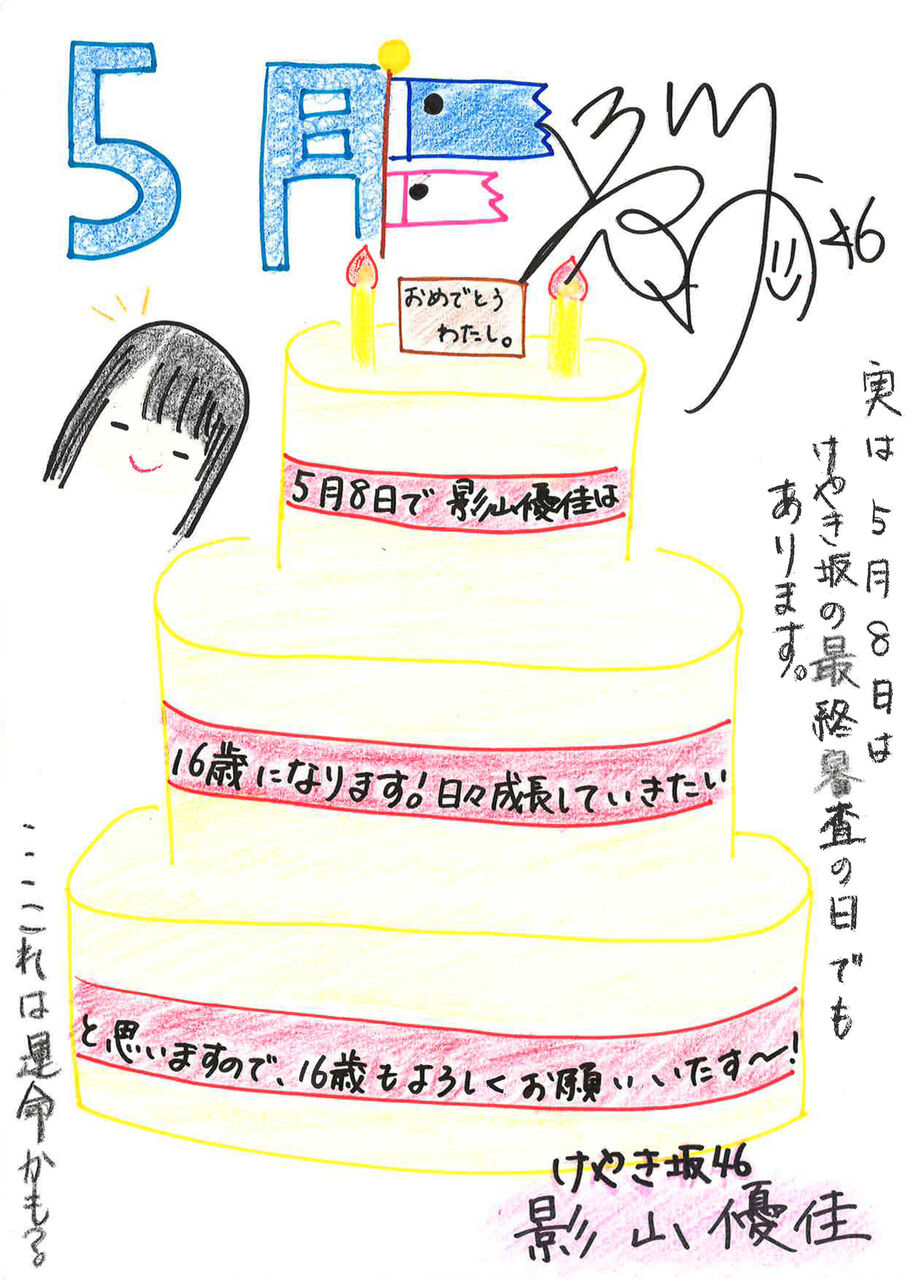 5月
46
おめでとう
わたし。
5月8日で 影山優佳は
16歳になります!日々成長していきたい
と思いますので、16歳もよろしくお願いいたす〜!
実は5月8日は
けやき坂の最終審査の日でも
あります。
・・・これは運命かもる
けやき坂46
影山優佳